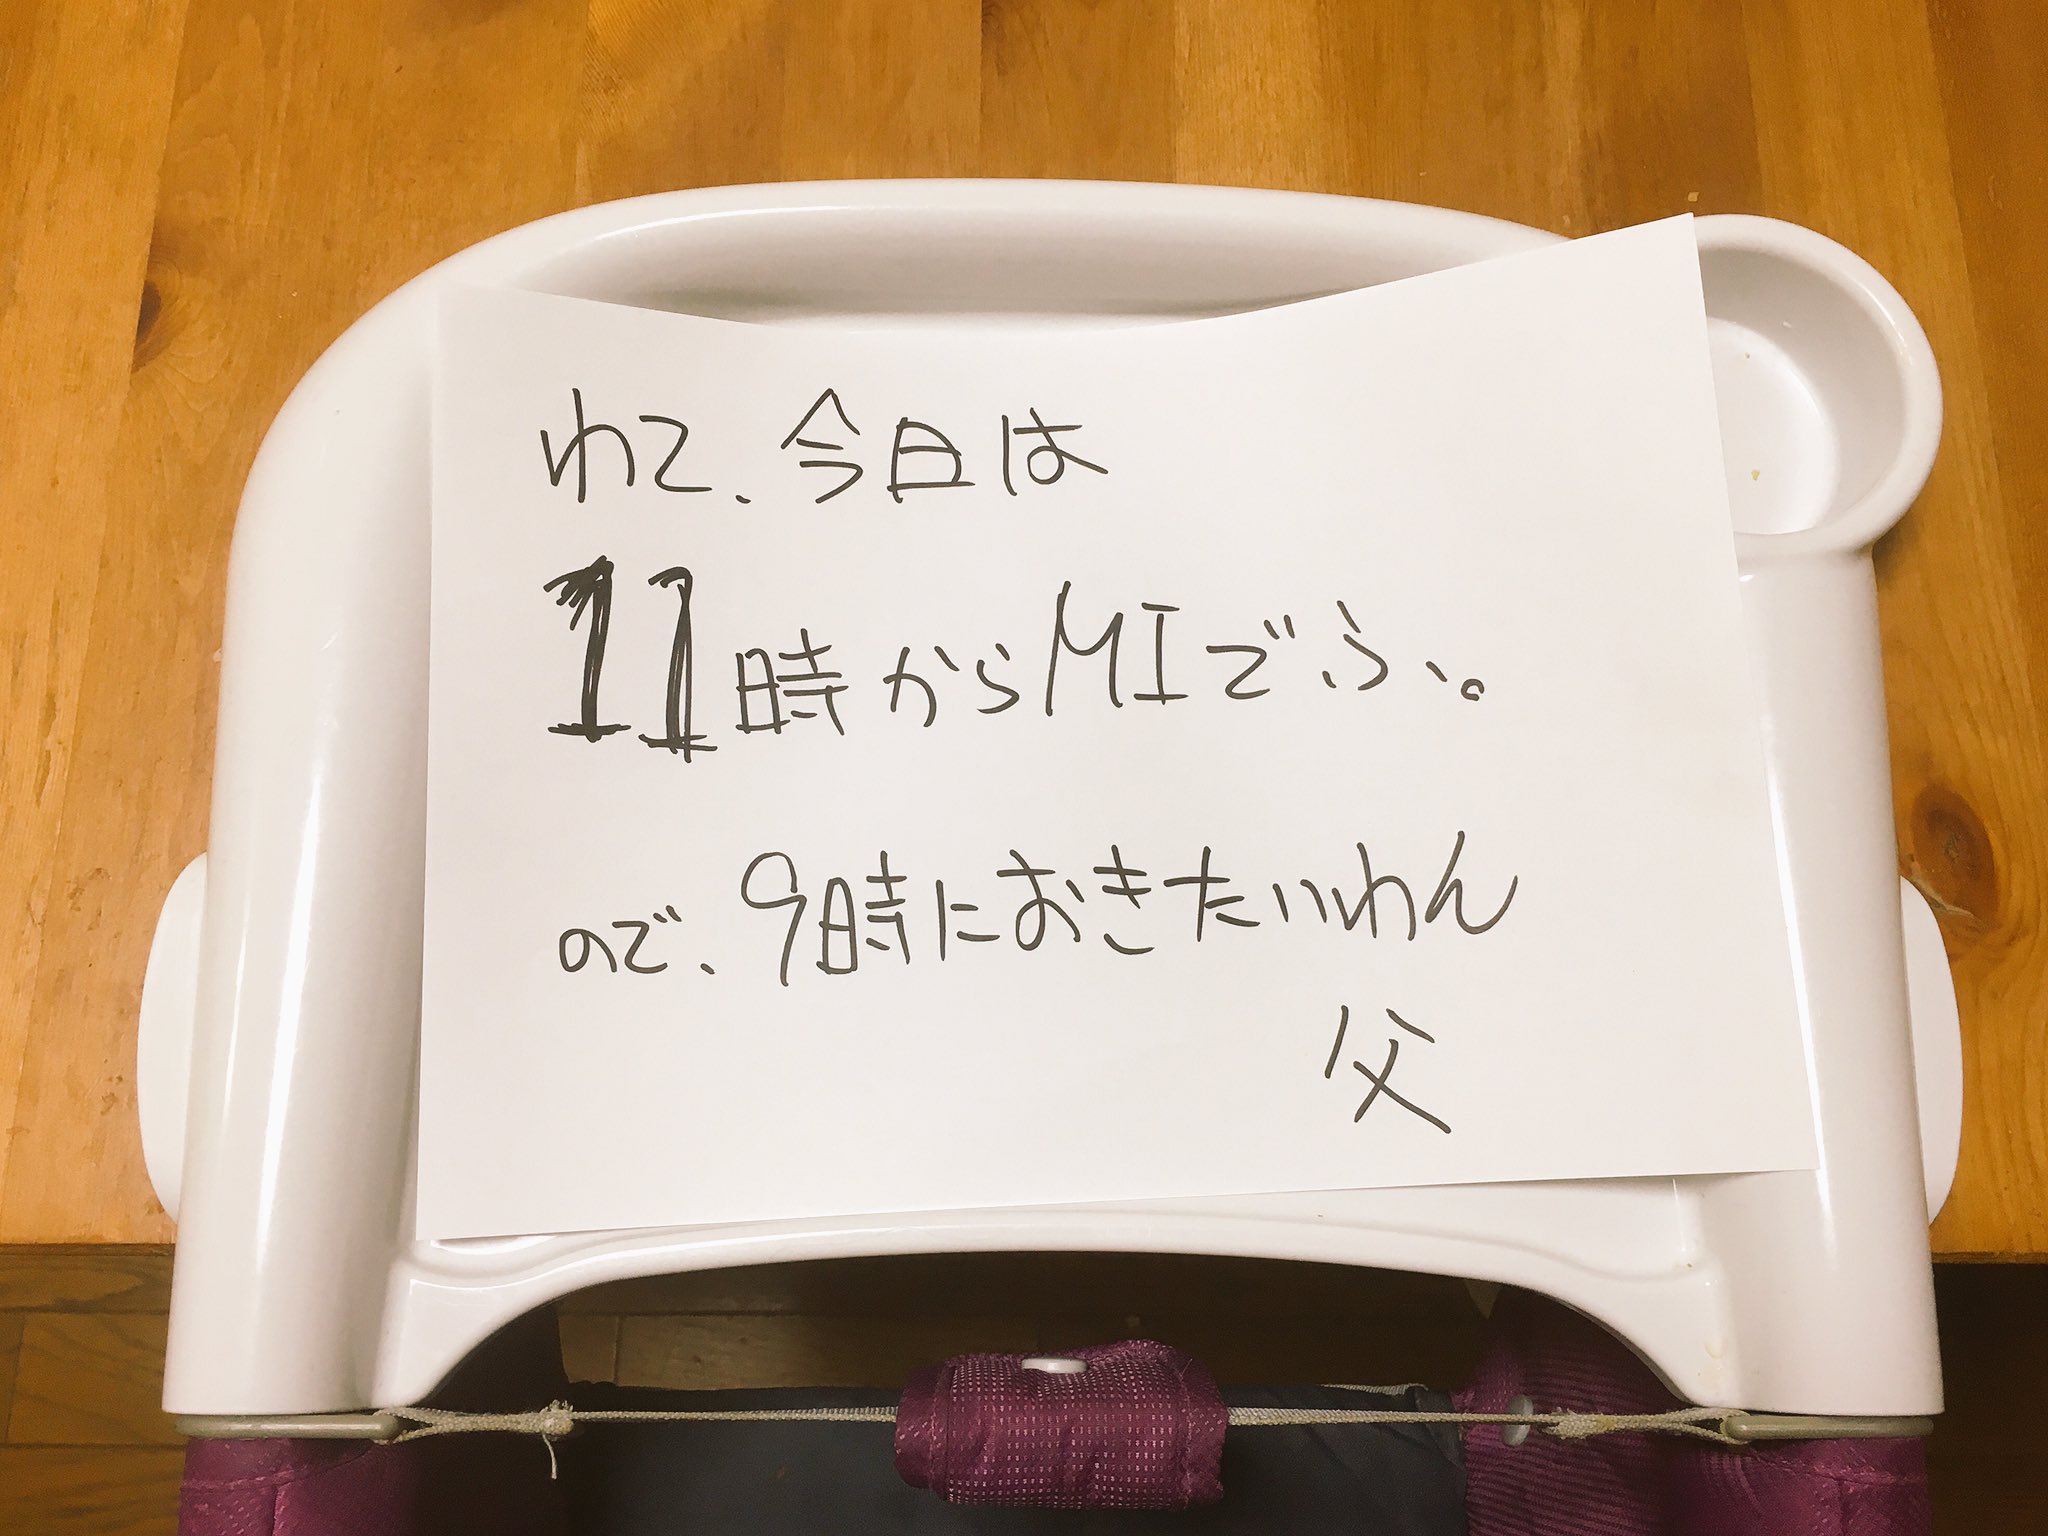 わて、今日は
11時からMIでふ、。
ので、9時におきたいわん
父